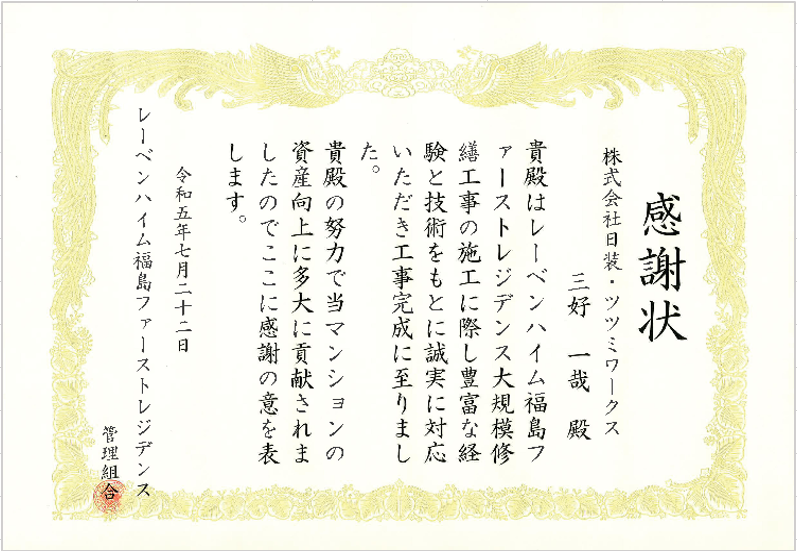 感謝状
株式会社日装・ツツミワークス
三好 一哉 殿
貴殿はレーベンハイム福島フ
ァーストレジデンス大規模修
繕工事の施工に際し豊富な経
験と技術をもとに誠実に対応
いただき工事完成に至りまし
た。
貴殿の努力で当マンションの
資産向上に多大に貢献されま
したのでここに感謝の意を表
します。
令和五年七月二十二日
レーベンハイム福島ファーストレジデンス
管理組合